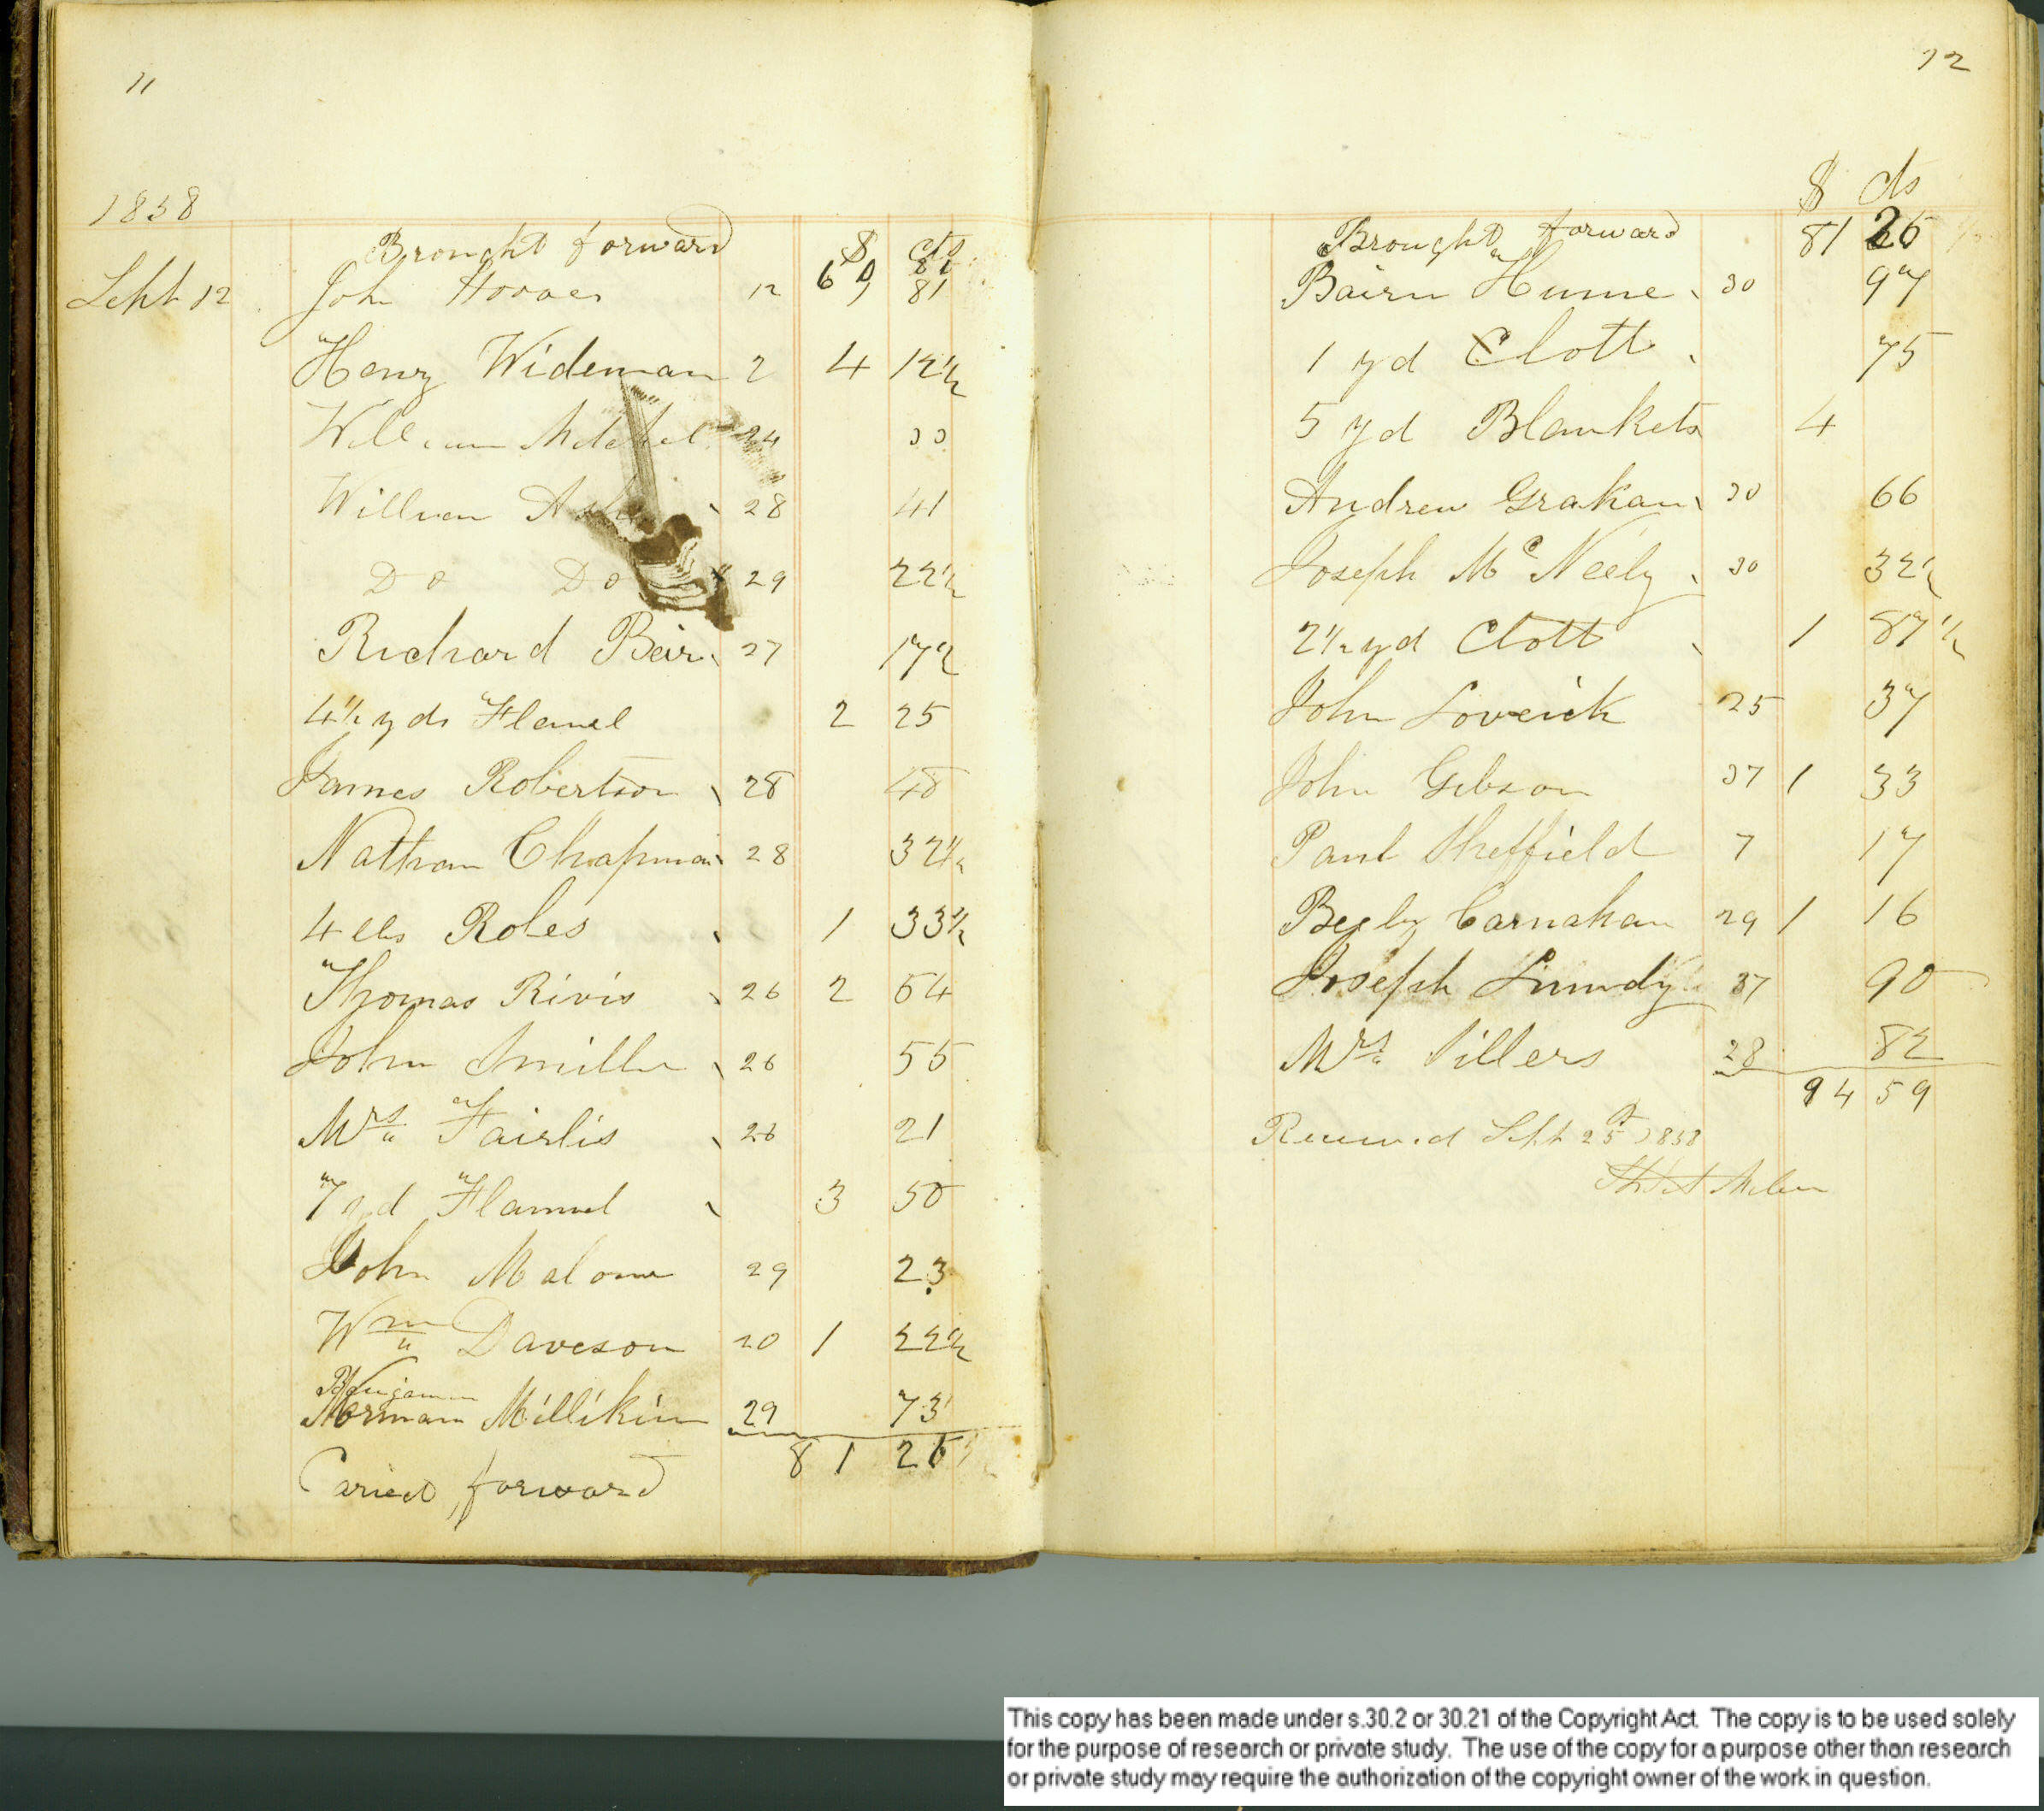 11
1838
Brought forward $ cts
60 81
Sept 12 John Hoover 12 1 81
Henry Wideman 2 4 12½
William Mitchel 24 33
William Ash 28 41
Do Do 29 22½
Richard Beir 27 17½
4½ yds Flanel 2 25
James Robertson 28 48
Nathan Chapman 28 32½
4 lbs Roles 1 33½
Thomas Rivis 26 2 64
John Smiller 26 55
Mrs Fairlis 26 21
7 yd Flannel 3 50
John Malone 29 23
Wm Daveson 20 1 22½
Benjamin
Norman Millikin 29 73
81 26
Caried forward
12
$ cts
Brought forward 81 26
Bairn Hume 30 97
1 yd Clott 75
5 yd Blankets 4
Andrew Graham 30 66
Joseph McNeely 30 32½
2½ yd Clott 1 87½
John Loveick 25 37
John Gibson 37 1 33
Paul Sheffield 7 17
Carnahan 29 1 16
Joseph Lundy 37 90
Mrs Sillers 28 82
94 59
Received Sept 25 1838
This copy has been made under s.30.2 or 30.21 of the Copyright Act. The copy is to be used solely
for the purpose of research or private study. The use of the copy for a purpose other than research
or private study may require the authorization of the copyright owner of the work in question.